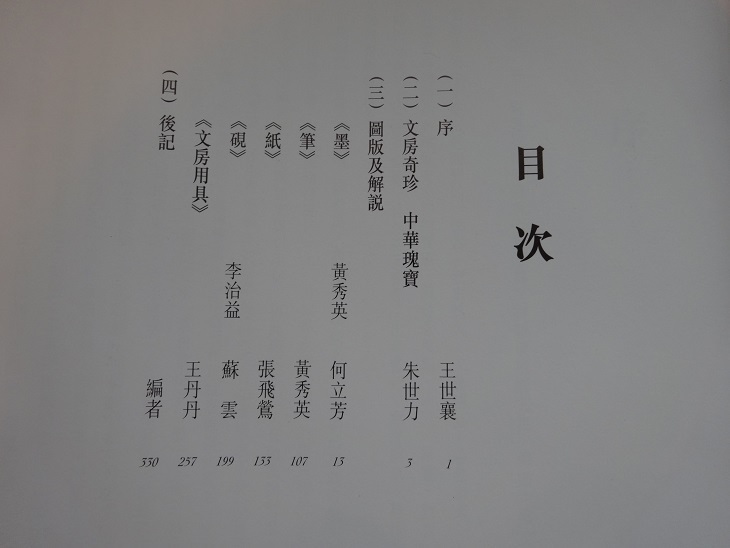 目次
(一)序 王世襄 1
(二)文房奇珍 中華瑰寶 朱世力 3
(三)圖版及解説
《墨》 黃秀英 何立芳 13
《筆》 黃秀英 107
《紙》 張飛鶯 133
《硯》 李治益 蘇雲 199
《文房用具》 王丹丹 257
(四)後記 編者 330